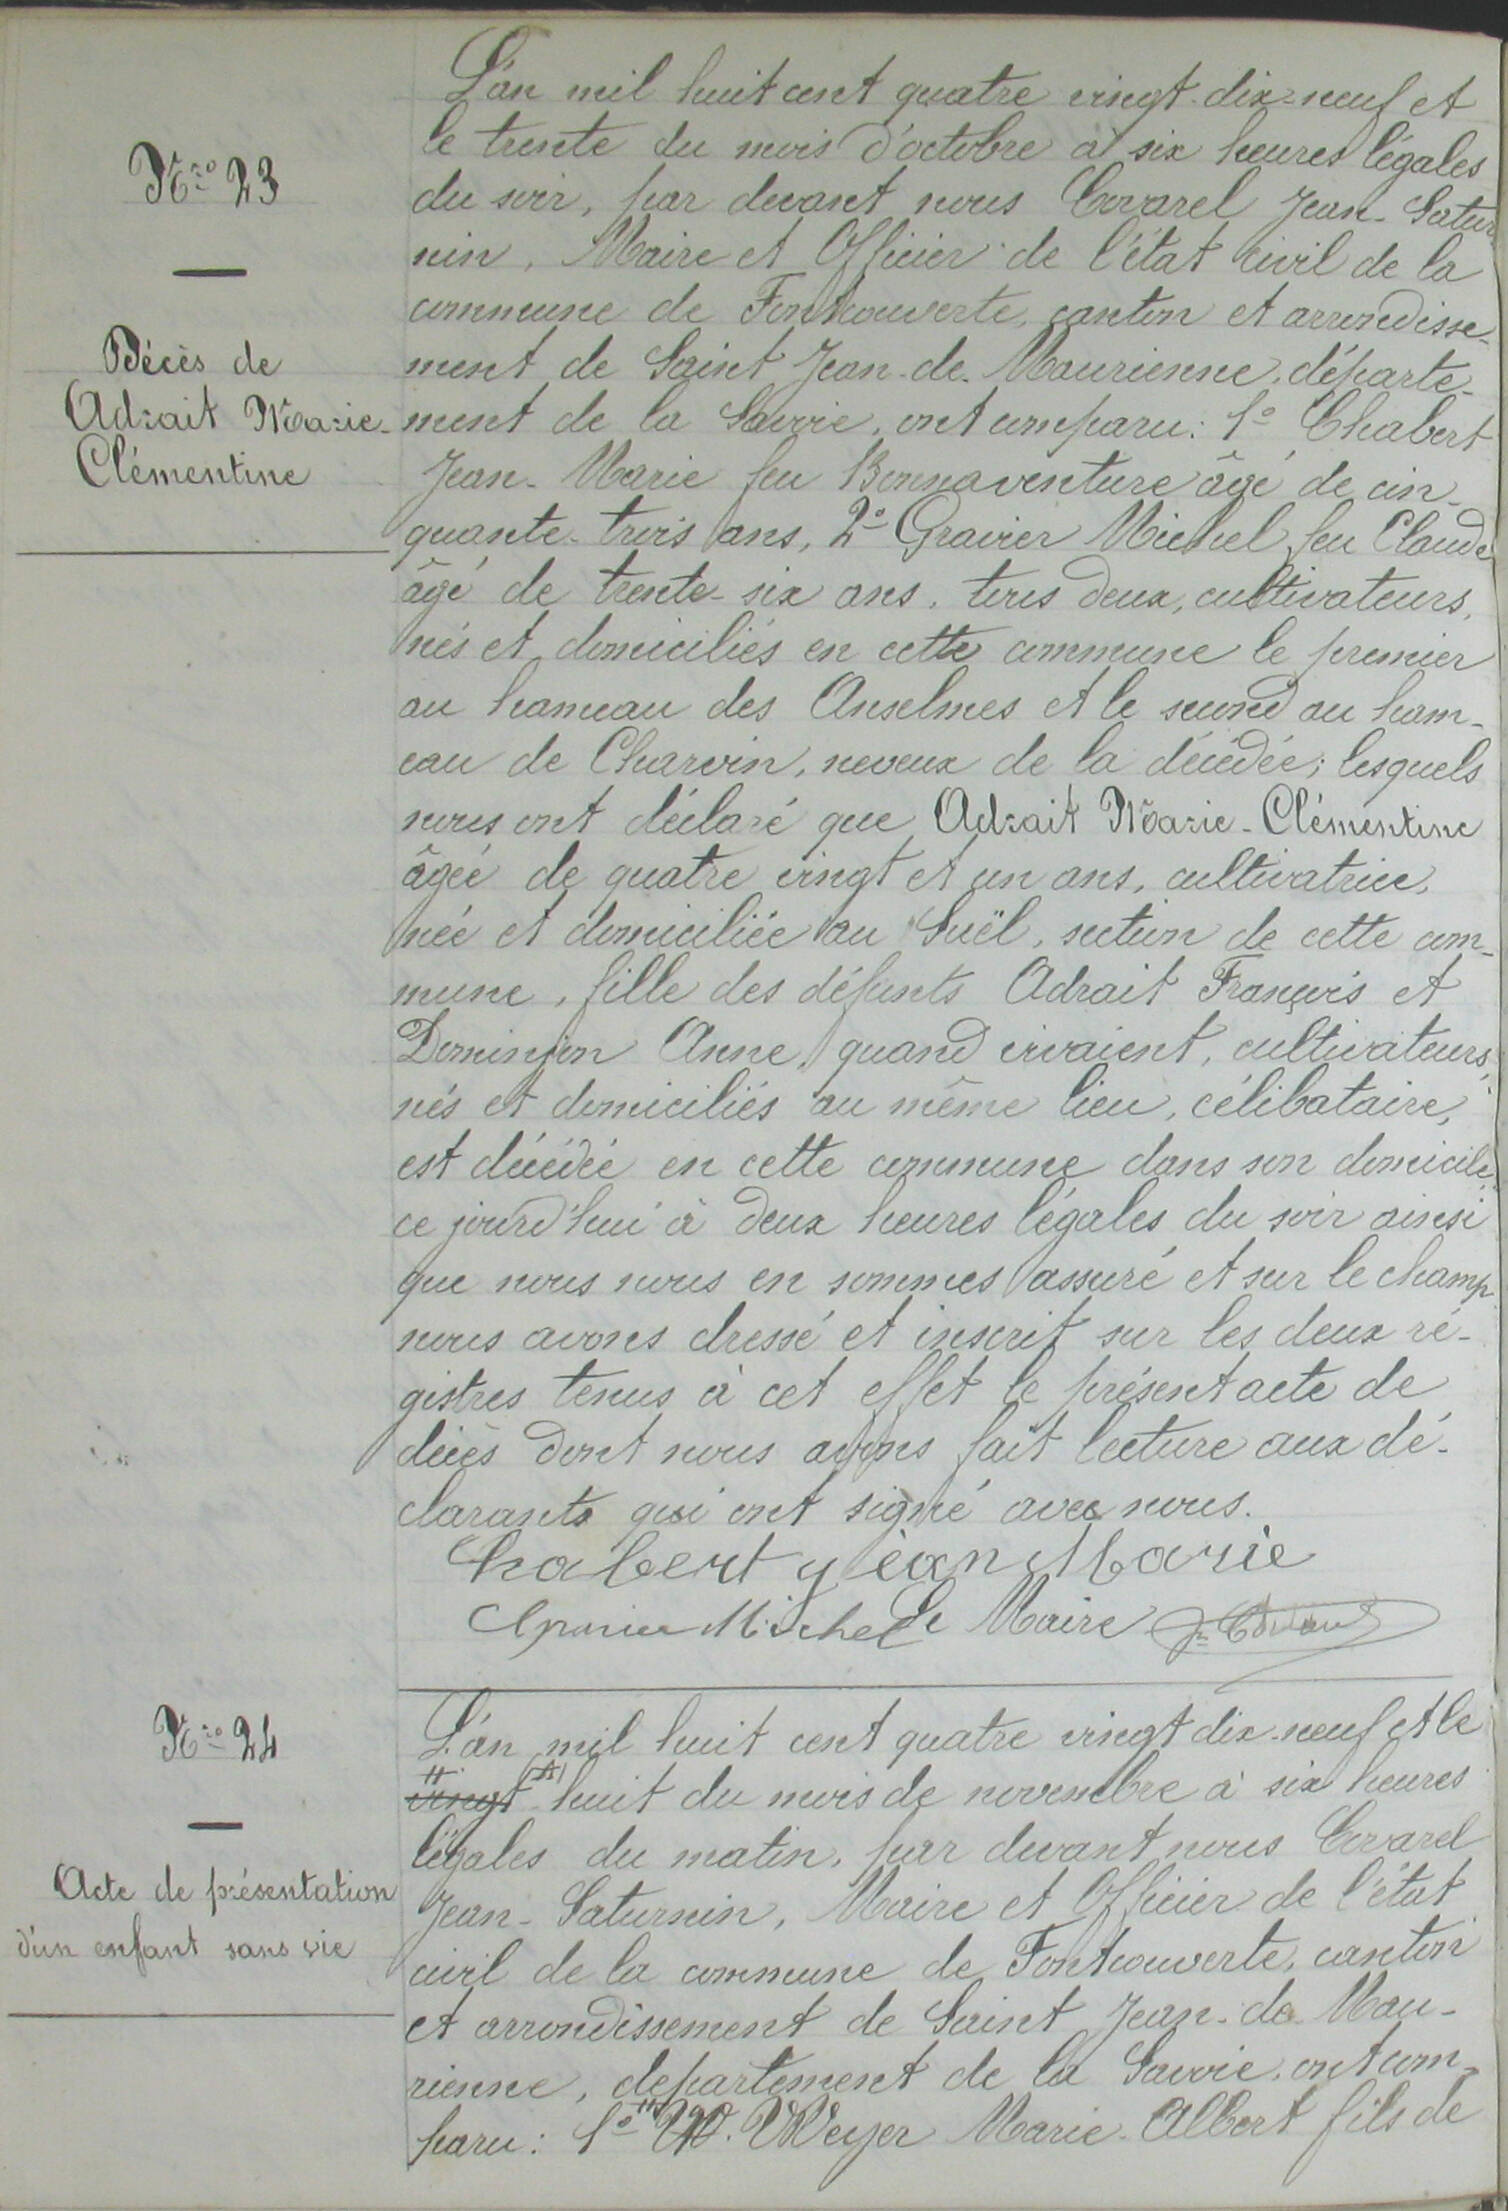 Nro 23
Décès de
Adrait Marie-
Clémentine
L'an mil huit cent quatre vingt-dix-neuf et
le trente du mois d'octobre à six heures légales
du soir, par devant nous Covarel Jean-Satur
nin, Maire et Officier de l'état civil de la
commune de Fontcouverte, canton et arrondisse-
ment de Saint Jean-de-Maurienne, départe-
ment de la Savoie, ont comparu: 1° Chabert
Jean-Marie feu Bonnaventure âgé de cin-
quante-trois ans, 2° Gravier Michel feu Claude
âgé de trente-six ans, tous deux, cultivateurs,
nés et domiciliés en cette commune le premier
au hameau des Anselmes et le second au ham-
eau de Charvin, neveux de la décédée; lesquels
nous ont déclaré que Adrait Marie-Clémentine
âgée de quatre vingt et un ans, cultivatrice,
née et domiciliée au Suël, section de cette com-
mune, fille des défunts Adrait François et
Dominjon Anne, quand vivaient, cultivateurs,
nés et domiciliés au même lieu, célibataire,
est décédée en cette commune dans son domicile,
ce jourd'hui à deux heures légales du soir ainsi
que nous nous en sommes assuré et sur le champ
nous avons dressé et inscrit sur les deux ré-
gistres tenus à cet effet le présent acte de
décès dont nous avons fait lecture aux dé-
clarants qui ont signé avec nous.
Chabert jean Marie
Gravier Michel Le Maire Jn Covarel
Nro 24
Acte de présentation
d'un enfant sans vie
L'an mil huit cent quatre vingt dix-neuf et le
vingt huit du mois de novembre à six heures
légales du matin, par devant nous Covarel
Jean-Saturnin, Maire et Officier de l'état
civil de la commune de Fontcouverte, canton
et arrondissement de Saint Jean-de-Mau-
rienne, departement de la Savoie, ont com-
paru: 1° M. Weyer Marie-Albert fils de